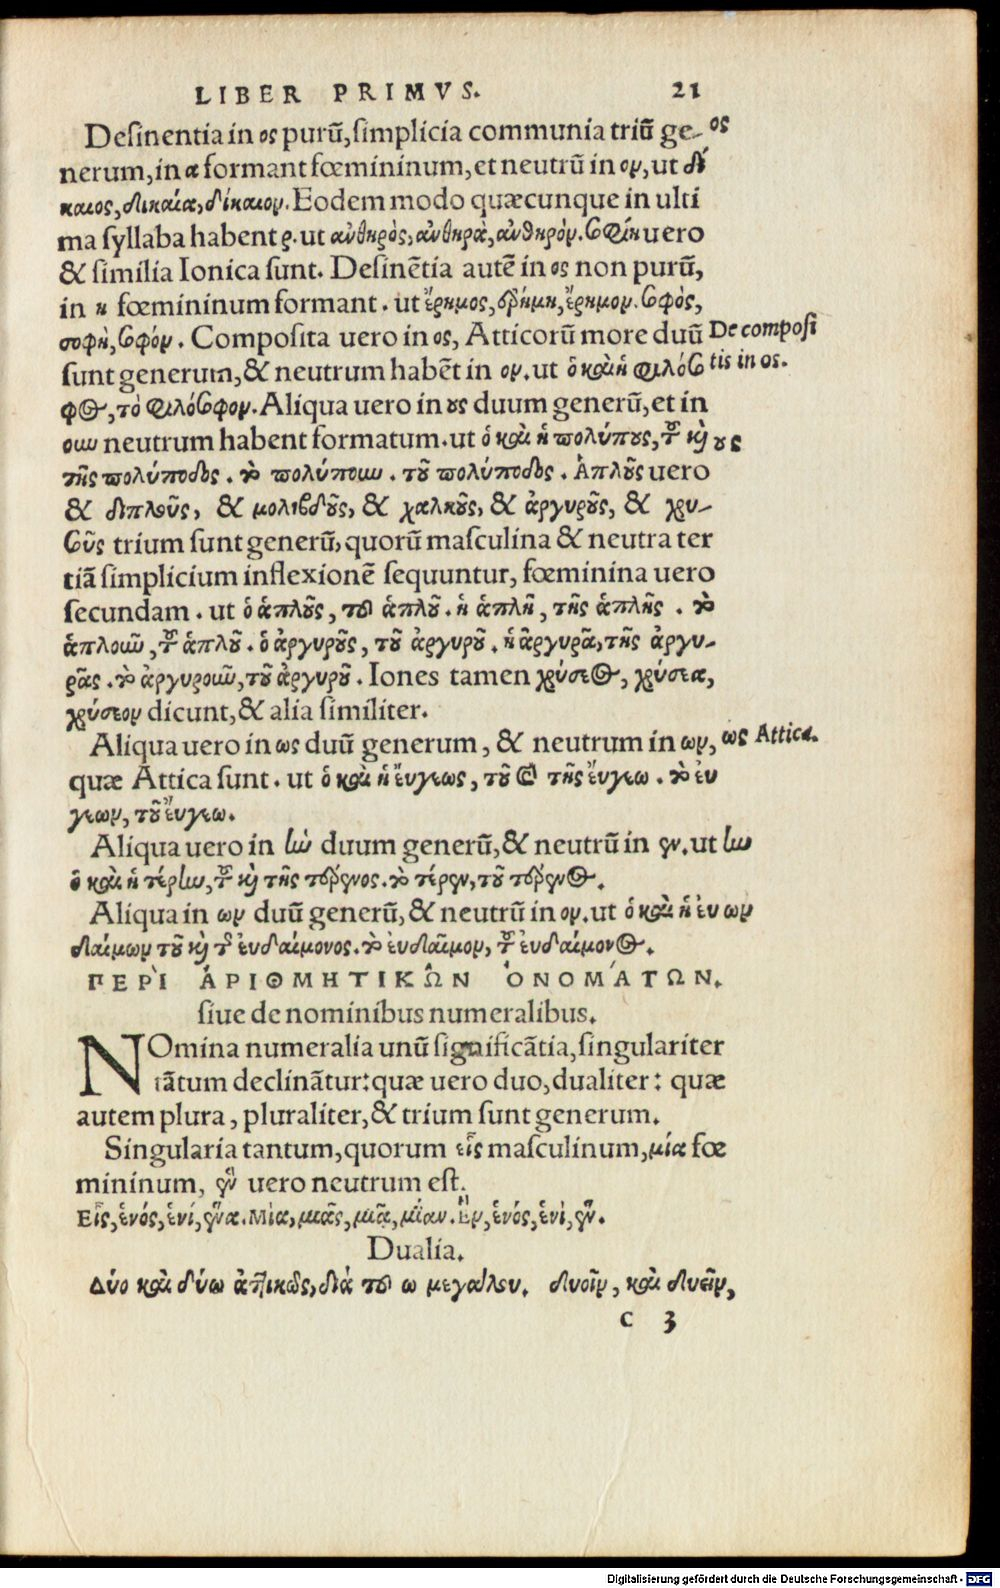 LIBER PRIMVS. 21
Desinentia in ος purũ, simplicia communia triũ ge- ος
nerum, in α formant fœmininum, et neutrũ in ον, ut δί
καιος, δικαία, δίκαιον. Eodem modo quæcunque in ulti
ma syllaba habent ρ. ut ἀνθηρὸς, ἀνθηρὰ, ἀνθηρὸν. σοφίη uero
& similia Ionica sunt. Desinẽtia autẽ in ος non purũ,
in η fœmininum formant. ut ἔρημος, ἐρήμη, ἔρημον. σοφὸς,
σοφὴ, σοφόν. Composita uero in ος, Atticorũ more duũ De composi
sunt generum, & neutrum habẽt in ον. ut ὁ καὶ ἡ φιλόσο tis in ος.
φος, τὸ φιλόσοφον. Aliqua uero in ους duum generũ, et in
ουν neutrum habent formatum. ut ὁ καὶ ἡ πολύπους, τοῦ καὶ ους
τῆς πολύποδος. τὸ πολύπουν. τοῦ πολύποδος. Ἁπλοῦς uero
& διπλοῦς, & μολιβδοῦς, & χαλκοῦς, & ἀργυροῦς, & χρυ-
σοῦς trium sunt generũ, quorũ masculina & neutra ter
tiã simplicium inflexionẽ sequuntur, fœminina uero
secundam. ut ὁ ἁπλοῦς, τοῦ ἁπλοῦ. ἡ ἁπλῆ, τῆς ἁπλῆς. τὸ
ἁπλοῦν, τοῦ ἁπλοῦ. ὁ ἀργυροῦς, τοῦ ἀργυροῦ. ἡ ἀργυρᾶ, τῆς ἀργυ-
ρᾶς. τὸ ἀργυροῦν, τοῦ ἀργυροῦ. Iones tamen χρύσεος, χρύσεα,
χρύσεον dicunt, & alia similiter.
Aliqua uero in ως duũ generum, & neutrum in ων, ως Attica.
quæ Attica sunt. ut ὁ καὶ ἡ ἔυγεως, τοῦ καὶ τῆς ἔυγεω. τὸ ἔυ
γεων, τοῦ ἔυγεω.
Aliqua uero in ην duum generũ, & neutrũ in εν. ut ην
ὁ καὶ ἡ τέρην, τοῦ καὶ τῆς τέρενος. τὸ τέρεν, τοῦ τέρενος.
Aliqua in ων duũ generũ, & neutrũ in ον. ut ὁ καὶ ἡ ἐυ ων
δαίμων τοῦ καὶ τῆς ἐυδαίμονος. τὸ ἐυδαῖμον, τοῦ ἐυδαίμονος.
ΠΕΡῚ ἈΡΙΘΜΗΤΙΚΩ͂Ν ὈΝΟΜΆΤΩΝ.
siue de nominibus numeralibus.
NOmina numeralia unũ significãtia, singulariter
tãtum declinãtur: quæ uero duo, dualiter: quæ
autem plura, pluraliter, & trium sunt generum.
Singularia tantum, quorum εἷς masculinum, μία fœ
mininum, ἓν uero neutrum est.
Εἷς, ἑνός, ἑνί, ἕνα. Μία, μιᾶς, μιᾷ, μίαν. Ἓν, ἑνός, ἑνὶ, ἓν.
Dualia.
Δύο καὶ δύω ἀττικῶς, διὰ τοῦ ω μεγάλου. δυοῖν, καὶ δυεῖν,
c 3
Digitalisierung gefördert durch die Deutsche Forschungsgemeinschaft - DFG